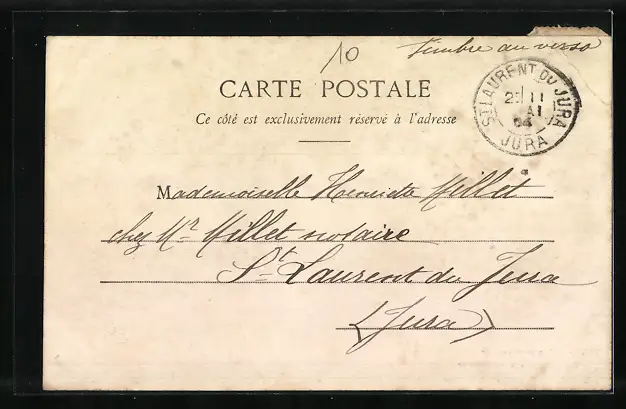 10
Timbre au verso
CARTE POSTALE
Ce côté est exclusivement réservé à l'adresse
ST LAURENT DU JURA
JURA
Mademoiselle Henriette Millet
chez Mr Millet notaire
St Laurent du Jura
(Jura)